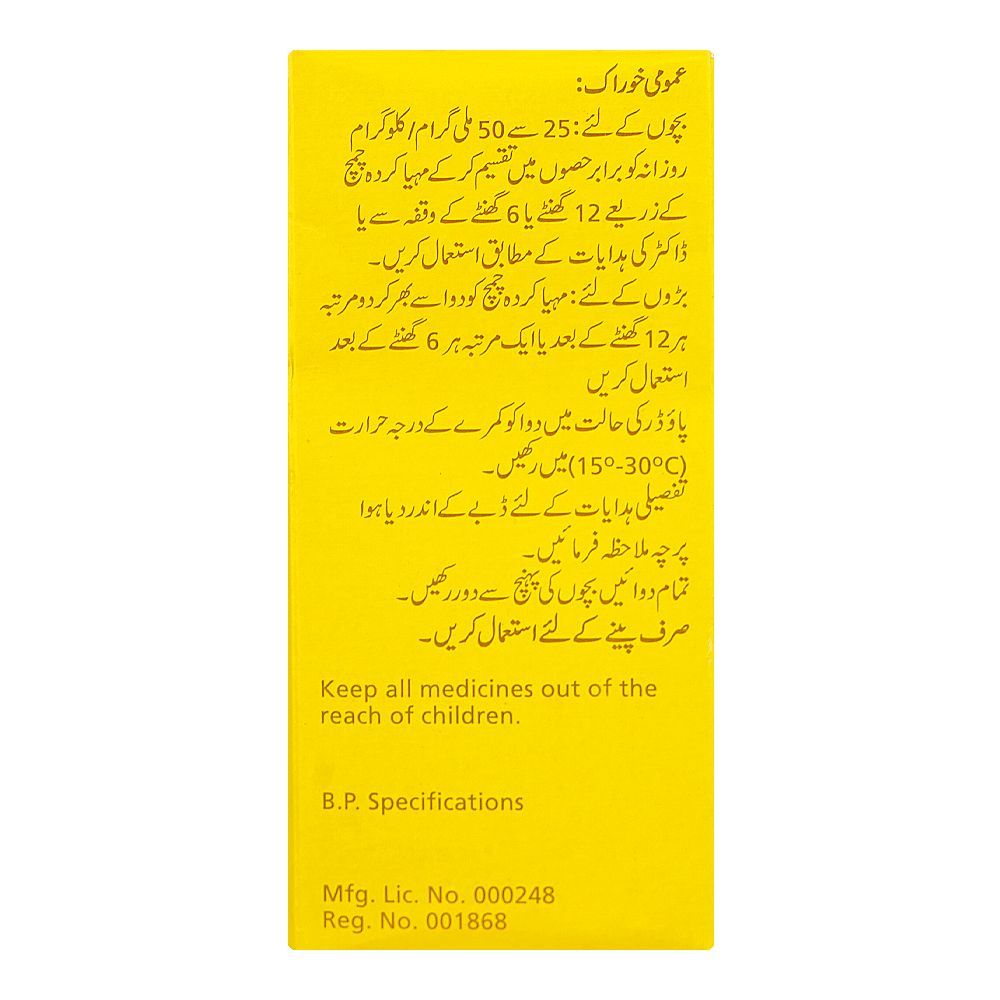 عمومی خوراک:
بچوں کے لئے: 25 سے 50 ملی گرام/کلوگرام
روزانہ کو برابر حصوں میں تقسیم کر کے مہیا کردہ چمچ
کے زریعے 12 گھنٹے یا 6 گھنٹے کے وقفہ سے یا
ڈاکٹر کی ہدایات کے مطابق استعمال کریں۔
بڑوں کے لئے: مہیا کردہ چمچ کو دوا سے بھر کر دو مرتبہ
ہر 12 گھنٹے کے بعد یا ایک مرتبہ ہر 6 گھنٹے کے بعد
استعمال کریں
پاؤڈر کی حالت میں دوا کو کمرے کے درجہ حرارت
(15º-30ºC) میں رکھیں۔
تفصیلی ہدایات کے لئے ڈبے کے اندر دیا ہوا
پرچہ ملاحظہ فرمائیں۔
تمام دوائیں بچوں کی پہنچ سے دور رکھیں۔
صرف پینے کے لئے استعمال کریں۔
Keep all medicines out of the
reach of children.
B.P. Specifications
Mfg. Lic. No. 000248
Reg. No. 001868